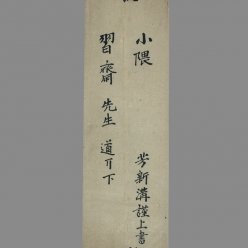 小隈
芳新溝謹上書
習齋先生道可下